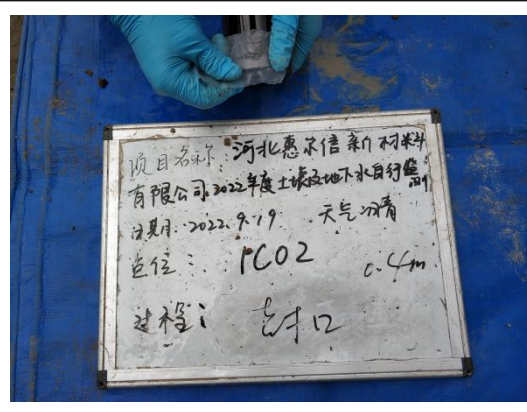 项目名称:河北惠尔信新材料
有限公司2022年度土壤及地下水自行监测
日期:2022.9.19 天气:晴
点位: 1C02 0.4m
过程: 封口